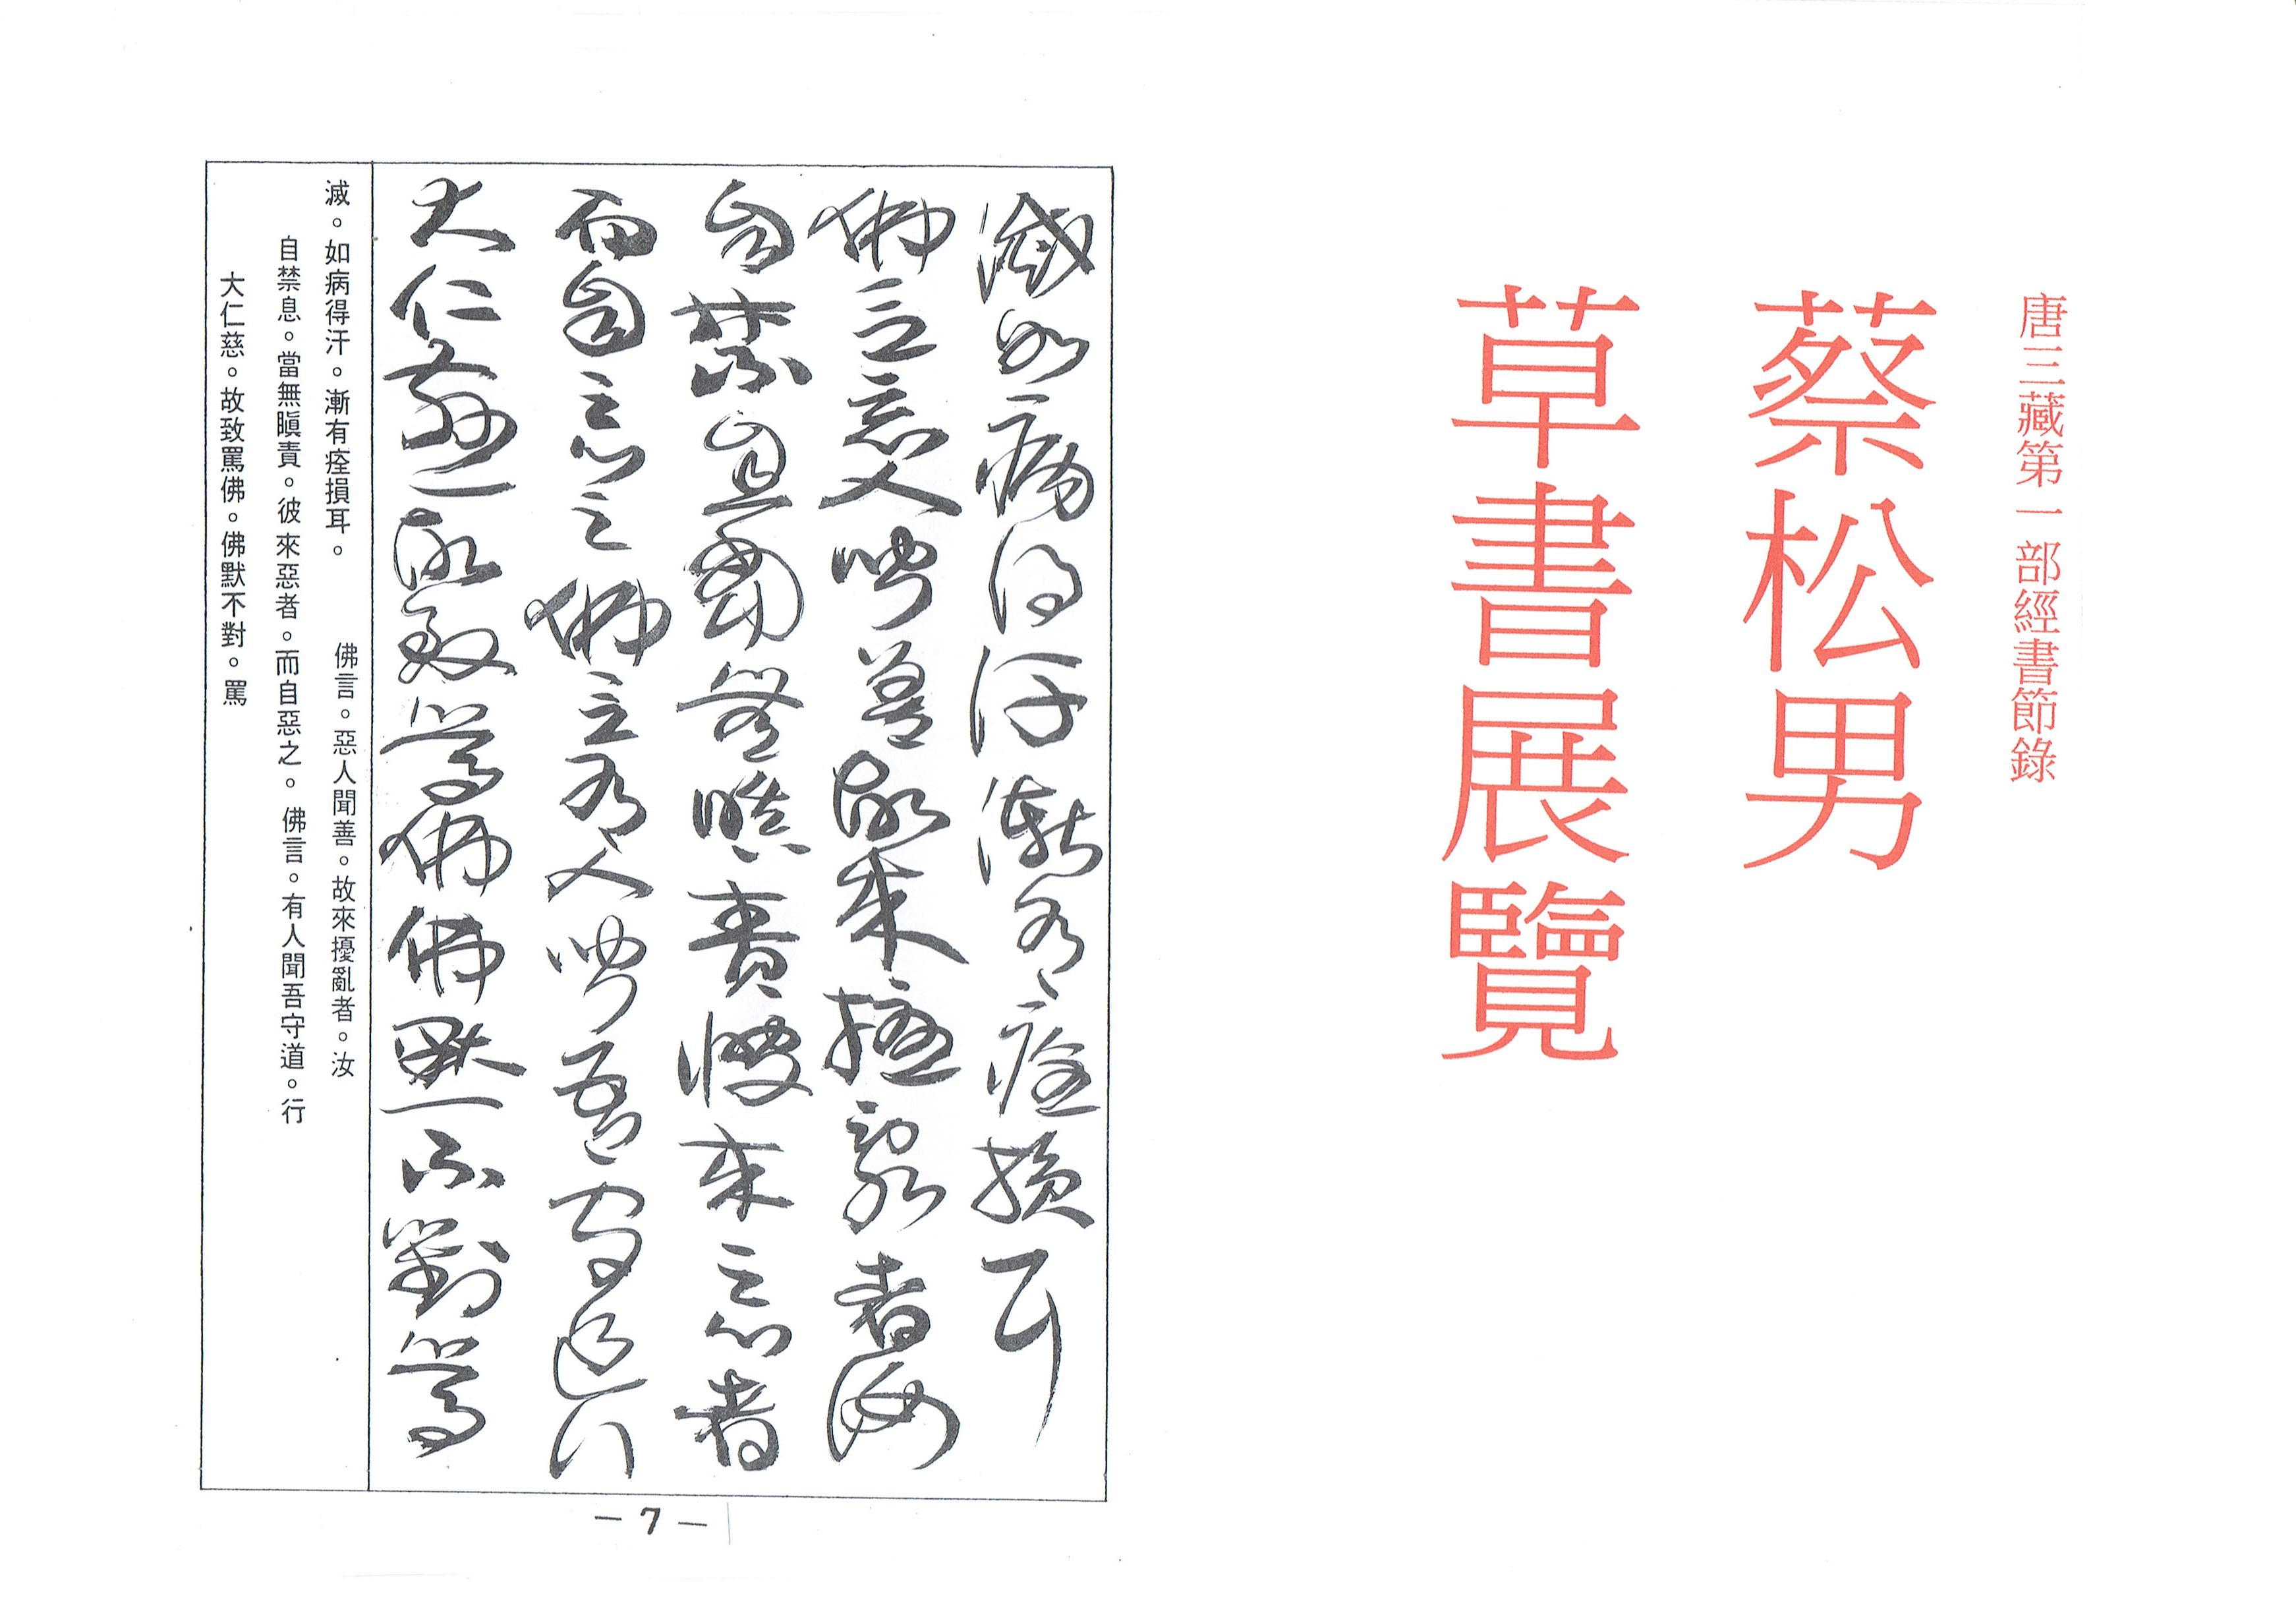 唐三藏第一部經書節錄
蔡松男
草書展覽
滅如病得汗漸有痊損耳
佛言惡人聞善故來擾亂者汝
自禁息當無瞋責彼來惡者
而自惡之佛言有人聞吾守道行
大仁慈故致罵佛佛默不對罵
滅。如病得汗。漸有痊損耳。 佛言。惡人聞善。故來擾亂者。汝
自禁息。當無瞋責。彼來惡者。而自惡之。佛言。有人聞吾守道。行
大仁慈。故致罵佛。佛默不對。罵
— 7 —